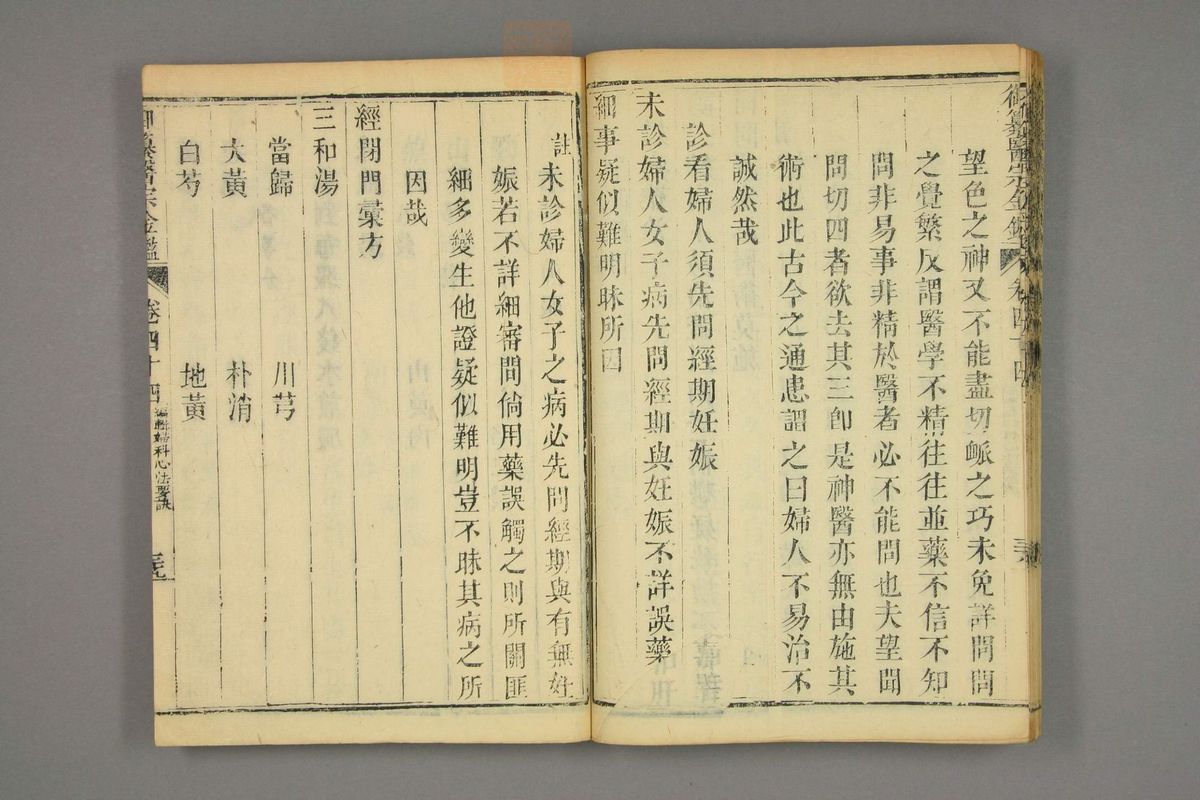 御纂醫宗金鑑 卷四十四
望色之神又不能盡切脈之巧未免詳問問
之覺繁反謂醫學不精往往並藥不信不知
問非易事非精於醫者必不能問也夫望聞
問切四者欲去其三卽是神醫亦無由施其
術也此古今之通患謂之曰婦人不易治不
誠然哉
診看婦人須先問經期妊娠
未診婦人女子病先問經期與妊娠不詳誤藥
細事疑似難明昧所因
註未診婦人女子之病必先問經期與有無妊
娠若不詳細審問倘用藥誤觸之則所關匪
細多變生他證疑似難明豈不昧其病之所
因哉
經閉門彙方
三和湯
當歸 川芎
大黃 朴消
白芍 地黃
御纂醫宗金鑑 卷四十四 編輯婦科心法要訣 三九